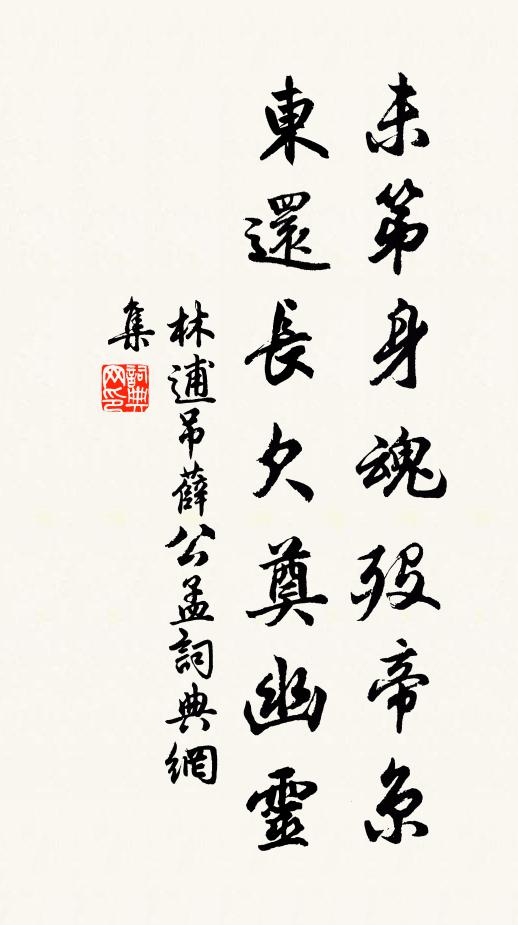 未第身魂歿帝京
東還長欠奠幽靈
林逋吊薛公孟詞典網
集
詞典
网印